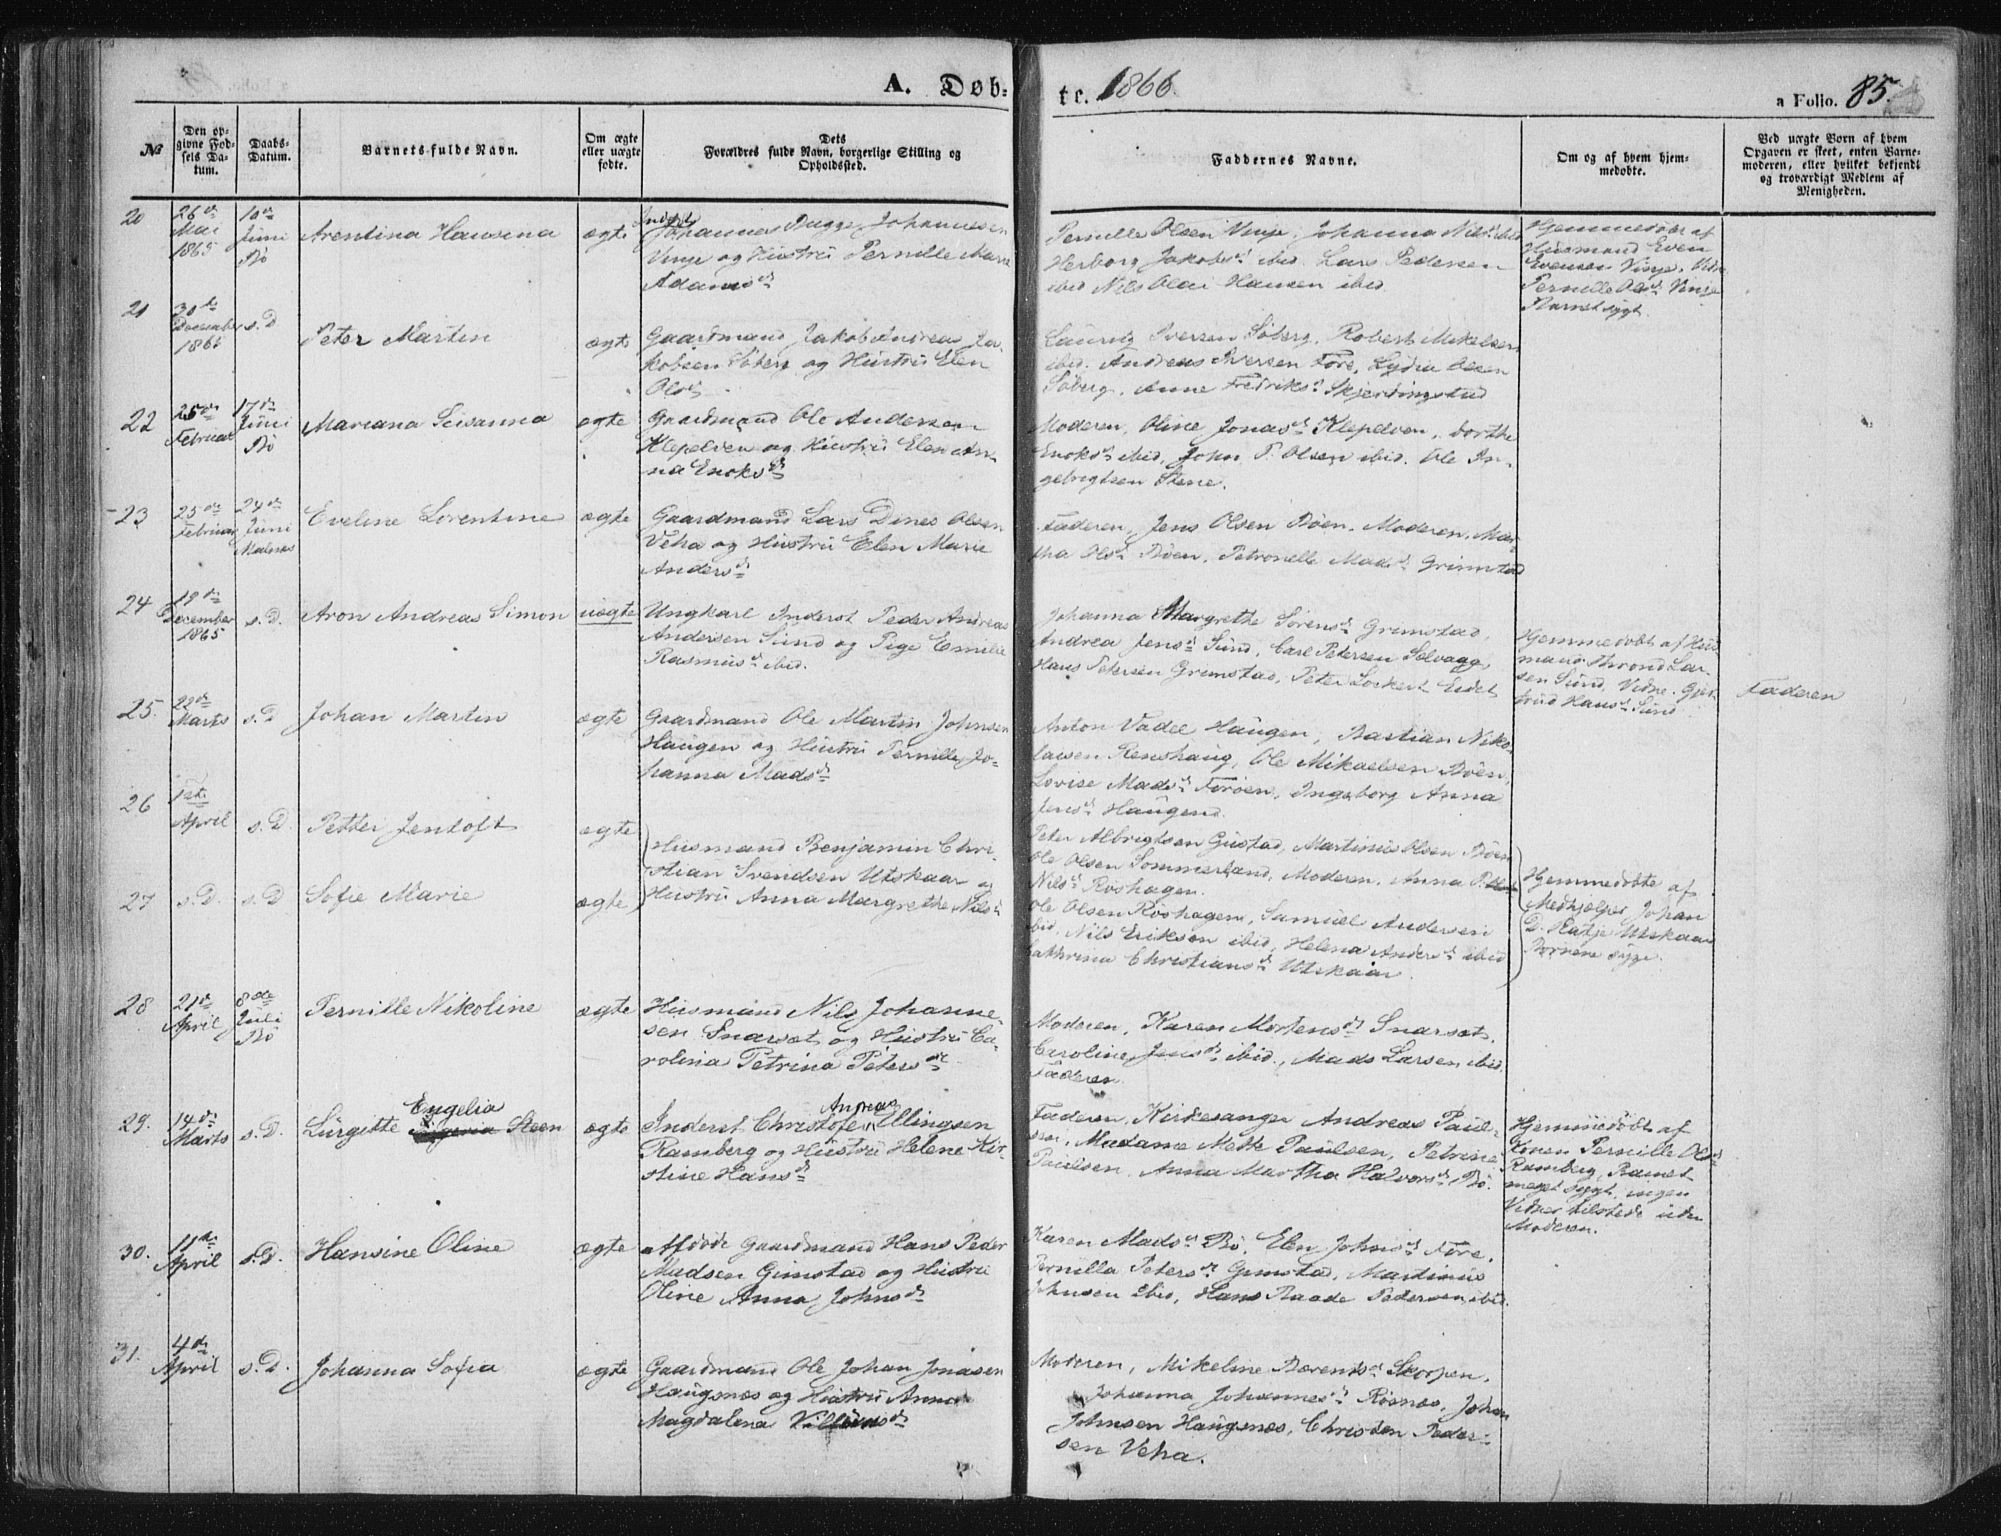 A. Døb-
te. 1866.
a Folio. 85.
No
Den op-
givne Fød-
sels Da-
tum.
Daabs-
Datum.
Barnets fulde Navn.
Om ægte
eller uægte
fødte.
Dets
Forældres fulde Navn, borgerlige Stilling og
Opholdssted.
Faddernes Navne.
Om og af hvem hjem-
medøbte.
Ved uægte Børn af hvem
Opgaven er skeet, enten Barne-
moderen, eller hvilket bekjendt
og troværdigt Medlem af
Menigheden.
20
26de
Mai
1865
10de
Juni
Bø
Arentina Hansena
ægte
Inderst
Johannes Dugge Johannesen
Vinje og Hustru Pernille Marie
Adamsd
Pernille Olsen Vinje, Johanna Nilsd ibid
Herborg Jakobsd ibid. Lars Pedersen
ibid Nils Olai Hansen ibid
Hjemmedøbt af
Huusmand Even
Evensen Vinje. Vidne
Pernille Olsd Vinje
Barnet sygt.
21
30te
December
1865
s. D
Peter Martin
ægte
Gaardmand Jakob Andreas Ja-
kobsen Søberg og Hustru Elen
Olsd
Lauritz Iversen Søberg, Robert Mikelsen
ibid. Andreas Iversen Føre, Lydia Olsen
Søberg, Anne Fredriksd Skjerfingstad
22
25de
Februar
17de
Juni
Bø
Mariana Susanna
ægte
Gaardmand Ole Andersen
Klepelven og Hustru Elen An-
na Enoksd
Moderen, Oline Jonasd Klepelven, Dorthe
Enoksd ibid, John P. Olsen ibid. Ole In-
gebrigtsen Stene.
23
25de
Februar
24de
Juni
Malnes
Eveline Lorentine
ægte
Gaardmand Lars Dines Olsen
Veha og Hustru Elen Marie
Andersd
Faderen, Jens Olsen Bøen. Moderen. Mar-
tha Olsd Bøen, Petronelle Madsd Grimstad
24
19de
December
1865
s. D.
Aron Andreas Simon
uægte
Ungkarl Inderst Peder Andreas
Andersen Sund og Pige Emilie
Rasmusd ibid.
Johanna Margrethe Sørensd Grimstad,
Andrea Jensd Sund, Carl Petersen Selvaag,
Hans Petersen Grimstad, Peter Lockert Eidet
Hjemmedøbt af Huus-
mand Thrond Lar
sen Sund, Vidne. Gjer-
trud Hansd Sund
Faderen
25.
22de
Marts
s. D
Johan Martin
ægte
Gaardmand Ole Martin Johnsen
Haugen og Hustru Pernille Jo-
hanna Madsd
Anton Vadel Haugen, Bastian Niko-
laisen Renshaug, Ole Mikaelsen Bøen,
Lovise Madsd Førøen, Ingeborg Anna
Jensd Haugen.
26
1ste
April
s. D.
Petter Jentoft
ægte
Husmand Benjamin Chri-
stian Svendsen Utskaar og
Hustru Anna Margrethe Nilsd
Peter Albrigtsen Gustad, Martinus Olsen Bøen
Ole Olsen Sommerland, Moderen, Anna
Nilsd Røshagen.
Hjemmedøbte af
Medhjælper Johan
D. Hatje Utskaar
Børnene syge.
27
s. D.
s. D
Sofie Marie
ægte
Ole Olsen Røshagen, Samuel Andersen
ibid, Nils Eriksen ibid, Helena Andersd ibid
Cathrina Christiansd Utskaar.
28
21de
April
8de
Juli
Bø
Pernille Nikoline
ægte
Husmand Nils Johanne-
sen Snarset og Hustru Ca-
rolina Petrina Petersd
Moderen, Karen Mortensd Snarset,
Caroline Jensd ibid., Mads Larsen ibid,
Faderen
29.
14de
Marts
s. D.
Engelia
Lürgitte Steen
ægte
Andreas
Inderst Christofer Ellingsen
Ramberg og Hustru Helene Kir-
stine Hansd
Faderen, Kirkesanger Andreas Paul-
sen, Madame Mette Paulsen, Petrine
Paulsen, Anna Martha Halvorsd Bø.
Hjemmedøbt af
Konen Pernille Olsd
Ramberg, Barnet
meget sygt, ingen
Vidner tilstede uden
Moderen.
30.
11te
April
s. D.
Hansine Oline
ægte
Afdøde Gaardmand Hans Peder
Madsen Gimstad og Hustru
Oline Anna Johnsd
Karen Madsd Bø, Elen Johnsd Føre,
Pernilla Petersd Gimstad, Martinus
Johnsen ibid, Hans Baade Pedersen ibid.
31.
4de
April
s. D.
Johanna Sofia
ægte
Gaardmand Ole Johan Jonasen
Haugsnes og Hustru Anna
Magdalena Villumsd
Moderen, Mikeline Bærentsd Skorpen,
Johanna Johannesd Røsnes, Johan
Johnsen Haugsnes, Christen Peder-
sen Veha.